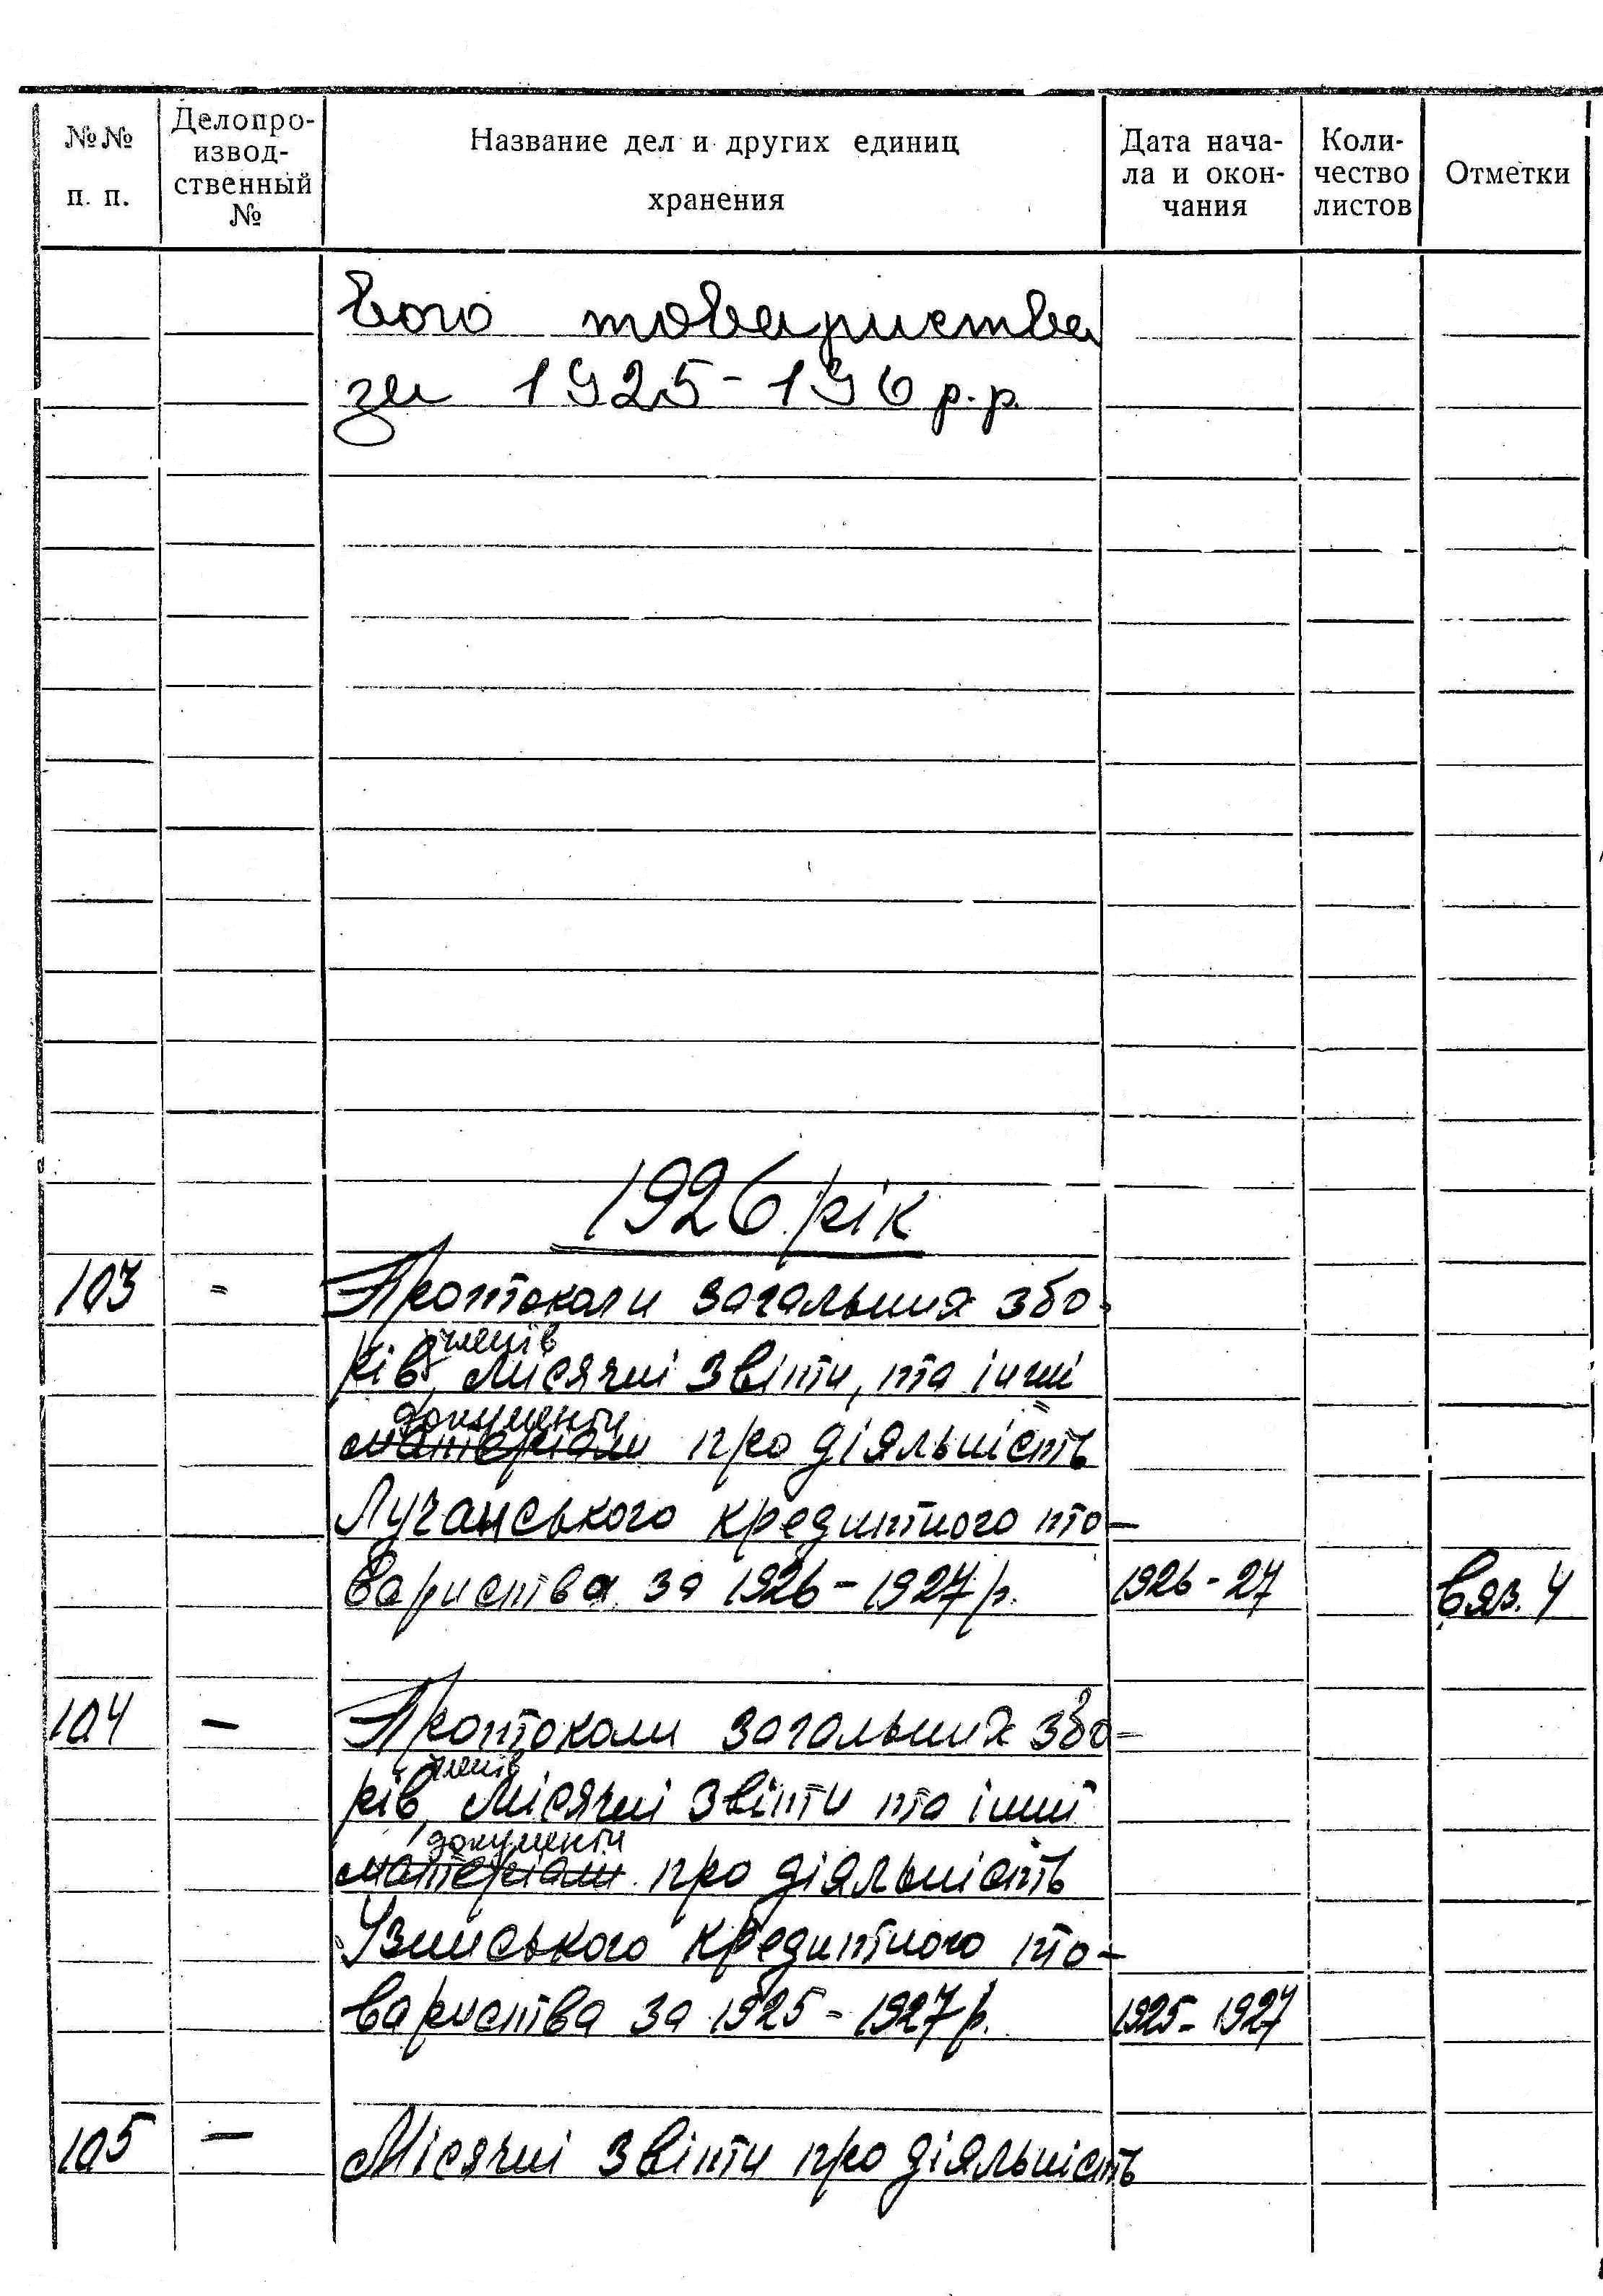 №№ п. п.
Делопро-
извод-
ственный
№
Название дел и других единиц
хранения
Дата нача-
ла и окон-
чания
Коли-
чество
листов
Отметки
вого товариства
за 1925-196 р.р.
1926 рік
103 = Протоколи загальних збо-
членів
рів, місячні звіти, та інші
документи
матеріали про діяльність
Лучанського кредитного то-
вариства за 1926-1927 р. 1926-27 вяз. 4
104 — Протоколи загальних збо-
членів
рів, місячні звіти та інші
документи
матеріали про діяльність
Узинського кредитного то-
вариства за 1925-1927 р. 1925-1927
105 — Місячні звіти про діяльність